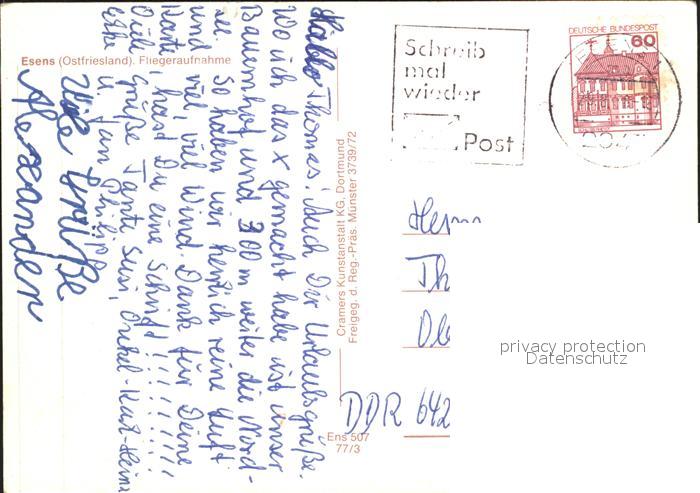 Esens (Ostfriesland). Fliegeraufnahme
Hallo Thomas! Auch Dir Urlaubsgrüße.
Wo ich das x gemacht habe ist unser
Bauernhof und 300 m weiter die Nord-
see. So haben wir herrlich reine Luft
und viel viel Wind. Dank für Deine
Karte, hast Du eine Schrift!!!!!!!!!
Dich Grüße Tante Susi, Onkel-Karl-Heinz
u. Jan Philipp
Viele Grüße
Alexander
Cramers Kunstanstalt KG, Dortmund
Freigeg. d. Reg.-Präs. Münster 3739/72
Ens 507
77/3
Schreib
mal
wieder
Post
DEUTSCHE BUNDESPOST
60
Herrn
Th
DDR 642
privacy protection
Datenschutz